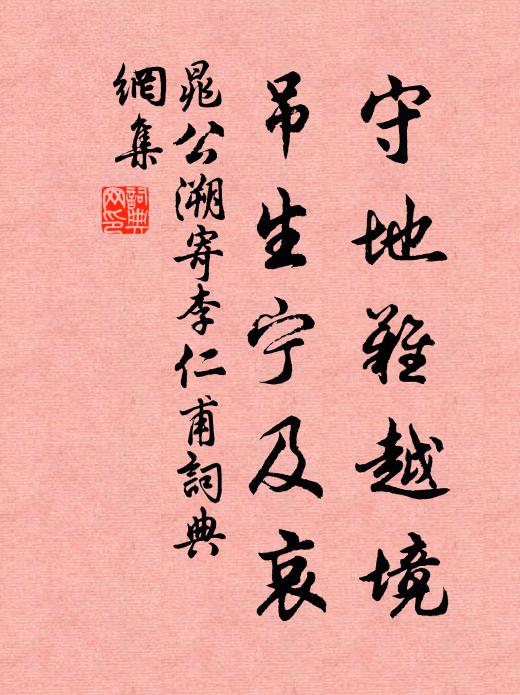 守地難越境
吊生宁及哀
晁公溯寄李仁甫詞典
網集
詞典
网印